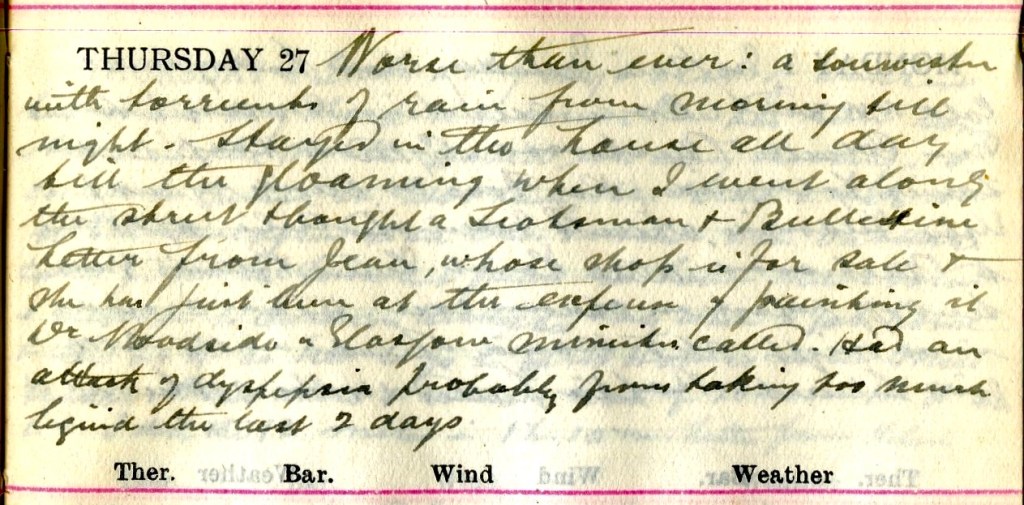 THURSDAY 27 Worse than ever: a souwester
with torrents of rain from morning till
night. Stayed in the house all day
till the gloaming when I went along
the street & bought a Scotsman &
Letter from Jean, whose shop is for sale &
she has just been at the expense of painting it
Dr Woodside a Glasgow minister called. Had an
attack of dyspepsia probably from taking too much
liquid the last 2 days
Ther. Bar. Wind Weather